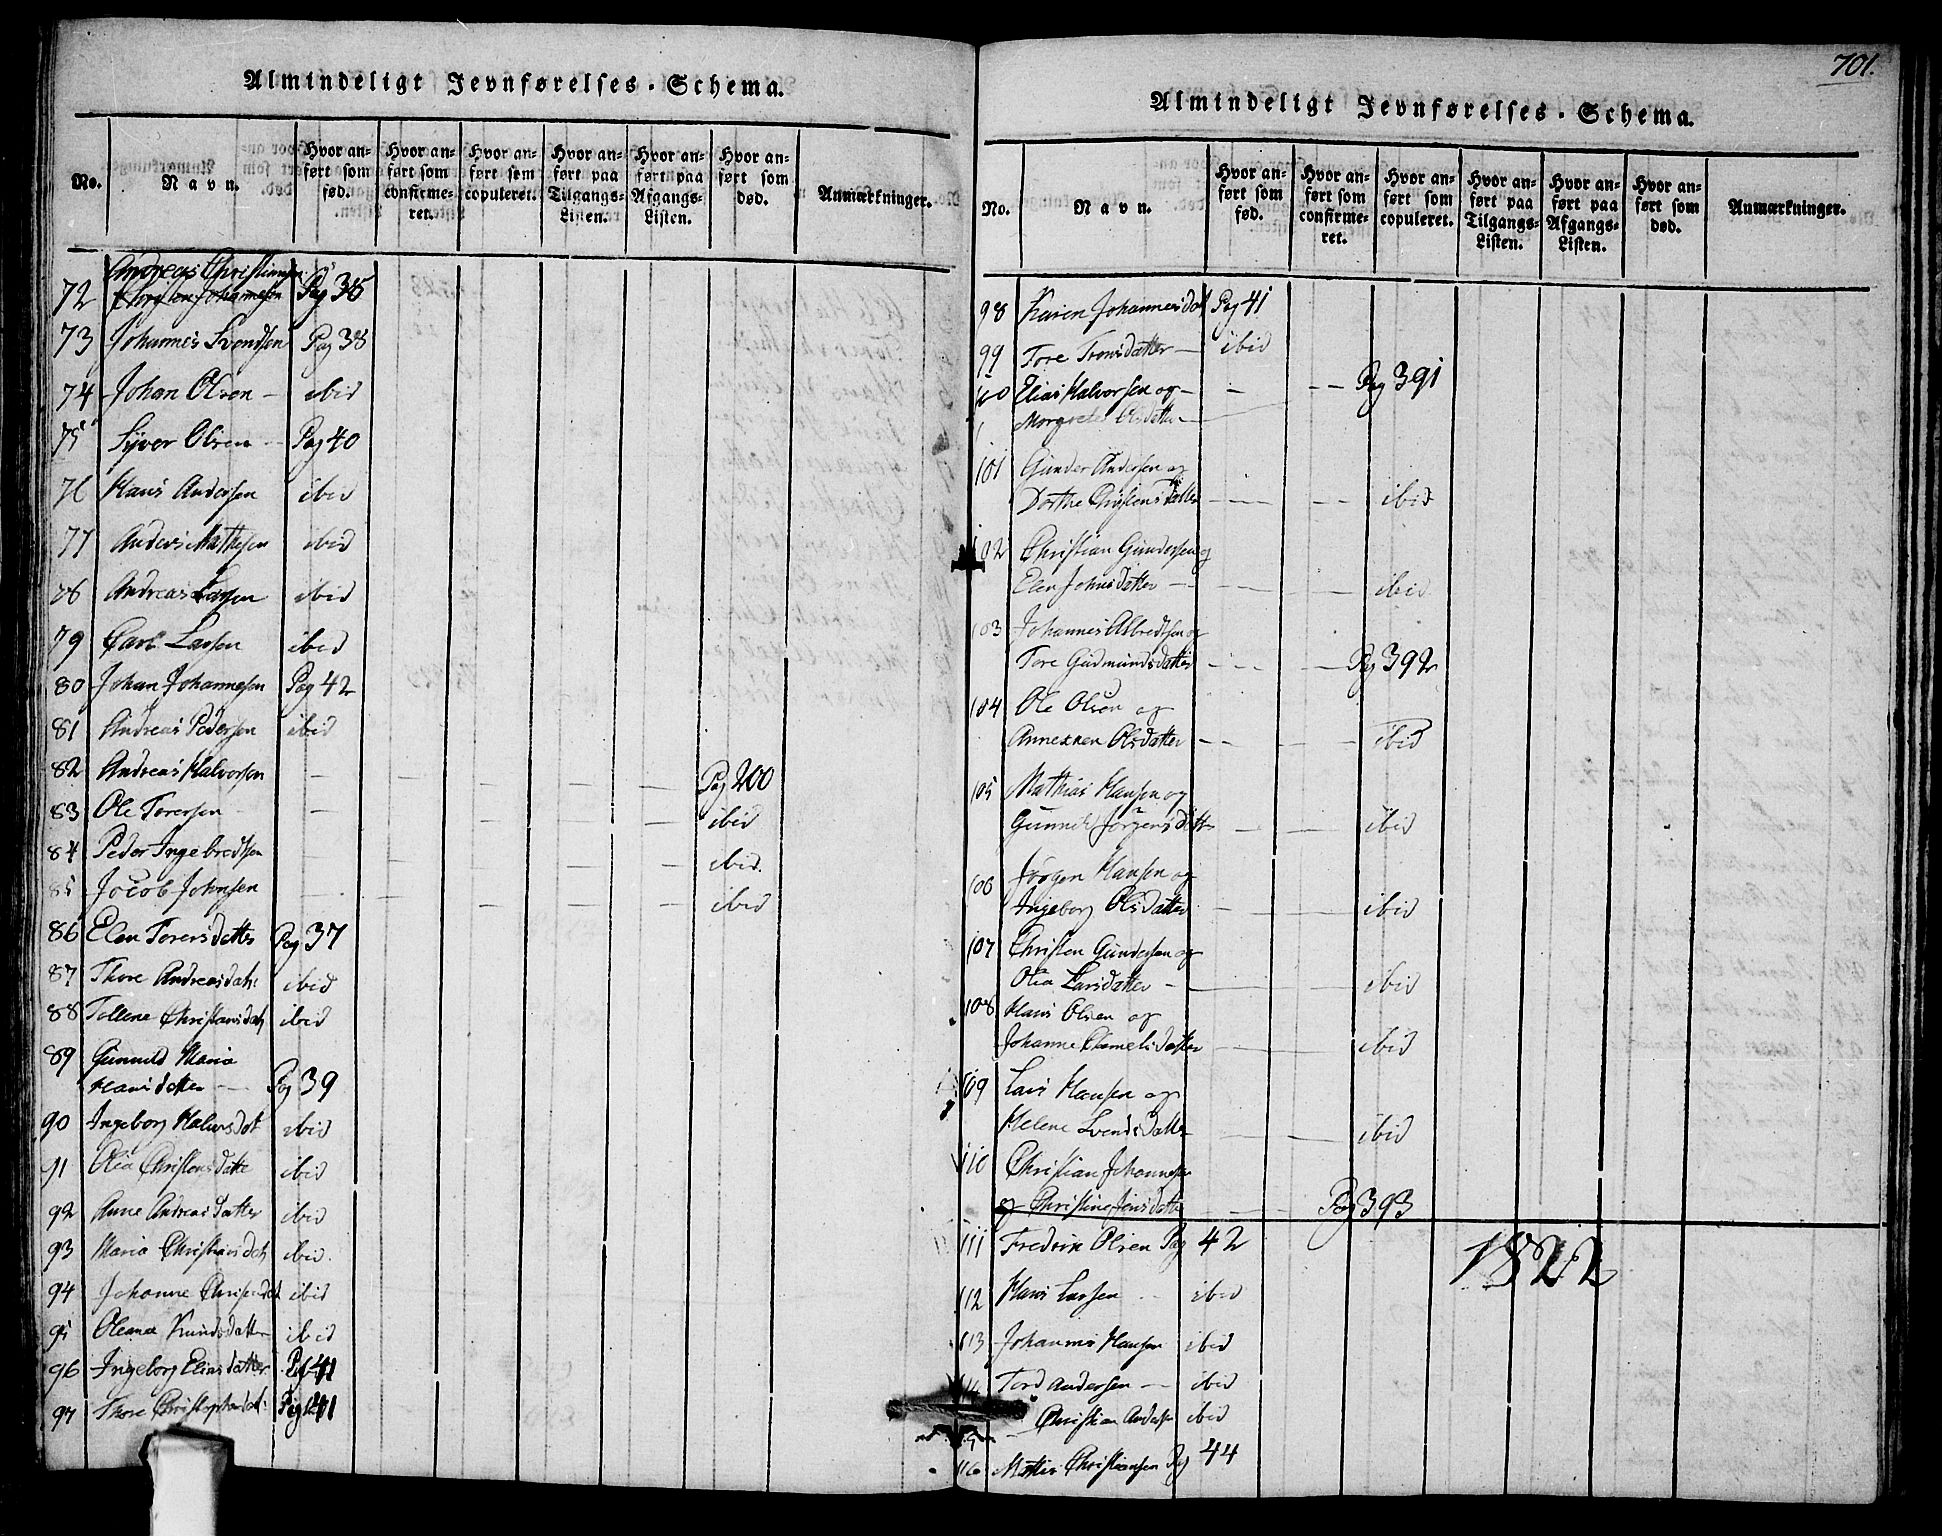 Almindeligt Jevnførelses-Schema.
No. Navn. Hvor anført som fød. Hvor anført som confirmeret. Hvor anført som copuleret. Hvor anført paa Tilgangs-Listen. Hvor anført paa Afgangs-Listen. Hvor anført som død. Anmærkninger.
Andreas Christiansen
72 Christen Johannesen Pag 35
73 Johannes Svendsen Pag 38
74 Johan Olsen – ibid
75 Syver Olsen – Pag 40
76 Hans Andersen ibid
77 Anders Mathesen ibid
78 Andreas Larsen ibid
79 Carl Larsen ibid
80 Johan Johannesen Pag 42
81 Andreas Pedersen ibid
82 Andreas Halvorsen – – – – – Pag 200
83 Ole Torersen – – – – – ibid
84 Peder Ingebredtsen – – – – – ibid.
85 Jacob Johnsen – – – – – ibid
86 Elen Torersdatter Pag 37
87 Thore Andreasdatr: ibid
88 Tollene Christiansdatr ibid
89 Gunnild Maria
Hansdatter – Pag 39
90 Ingeborg Halvorsdat ibid
91 Olia Christensdatte ibid
92 Anne Andreasdatter ibid
93 Maria Christiansdatr ibid.
94 Johanne ibid
95 Oleana Knudsdatter ibid
96 Ingeborg Eliasdatter Pag 41
97 Thore Christophersdatr: Pag 41
701.
Almindeligt Jevnførelses-Schema.
No. Navn. Hvor anført som fød. Hvor anført som confirmeret. Hvor anført som copuleret. Hvor anført paa Tilgangs-Listen. Hvor anført paa Afgangs-Listen. Hvor anført som død. Anmærkninger.
98 Karen Johannesdat Pag 41
99 Tore Tronsdatter – ibid
100 Elias Halvorsen og – – – Pag 391
Margrethe Olsdatter –
101 Gunder Andersen og
Dorthe Christensdatter – – – – ibid
102 Christian Gundersen og
Elen Johnsdatter – – – – ibid
103 Johannes Albredtsen og
Tore Gudmundsdatter – – – Pag 392
104 Ole Olsen og
Annexken Olsdatter – – – – ibid
105 Mathias Hansen og
Gunnild Jörgensdatter – – ibid
106 Jörgen Hansen og
Ingeborg Olsdatter – – ibid
107 Christen Gundersen og
Olia Larsdatter – – – ibid
108 Hans Olsen og
Johanne Samuelsdatter – – – ibid
109 Lars Hansen og
Helene Svendsdatter – – ibid
110 Christian Johannesen
og Christine Jonsdatter – – – Pag 393
111 Fredrik Olsen Pag 42
1822
112 Hans Larsen – ibid
113 Johannes Hansen ibid
114 Tord Andersen – ibid
Christian Anders ibid
116 Mathis Christiansen Pag 44